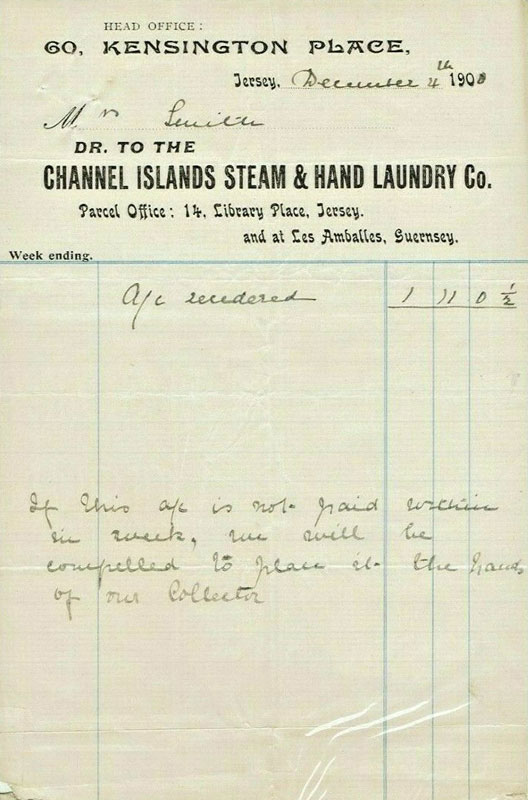 HEAD OFFICE:
60, KENSINGTON PLACE,
Jersey, December 4th 1900
Mrs Smith
DR. TO THE
CHANNEL ISLANDS STEAM & HAND LAUNDRY Co.
Parcel Office: 14, Library Place, Jersey.
and at Les Amballes, Guernsey.
Week ending.
A/c rendered 1 11 0 ½
If this a/c is not paid within
in week, we will be
compelled to place it the hands
of our Collector